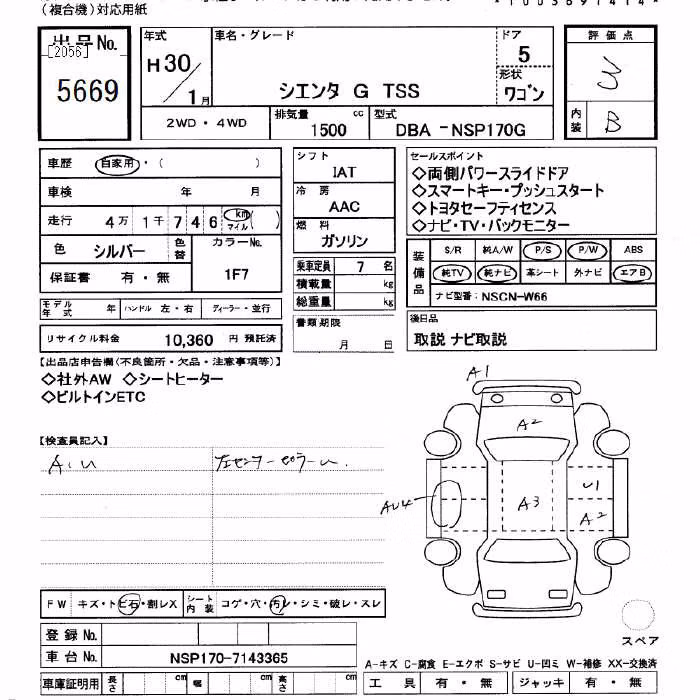 (複合機)対応用紙
*1003691414*
出品No.
[2056]
5669
年式
H30/1月
車名・グレード
シエンタ G TSS
ドア
5
形状
ワゴン
評価点
3
内装
B
2WD・4WD
排気量
1500 cc
型式
DBA -NSP170G
車歴 自家用・( )
車検 年 月
走行 4万1千746 km マイル( )
色 シルバー
色替
カラーNo.
1F7
保証書 有・無
モデル年式 年
ハンドル 左・右
ディーラー・並行
リサイクル料金 10,360 円 預託済
シフト
IAT
冷房
AAC
燃料
ガソリン
乗車定員 7 名
積載量 kg
総重量 kg
書類期限
月 日
セールスポイント
◇両側パワースライドドア
◇スマートキー・プッシュスタート
◇トヨタセーフティセンス
◇ナビ・TV・バックモニター
装備品
S/R 純A/W P/S P/W ABS
純TV 純ナビ 革シート 外ナビ エアB
ナビ型番: NSCN-W66
後日品
取説 ナビ取説
【出品店申告欄(不良箇所・欠品・注意事項等)】
◇社外AW ◇シートヒーター
◇ビルトインETC
【検査員記入】
A.U
左センターピラーU.
A1
A2
A3
U1
A2
AU4
FW キズ・トビ石・割レX
シート内装 コゲ・穴・汚レ・シミ・破レ・スレ
登録No.
車台No. NSP170-7143365
車庫証明用 長さ cm 幅 cm 高さ cm
スペア
A-キズ C-腐食 E-エクボ S-サビ U-凹ミ W-補修 XX-交換済
工具 有・無 ジャッキ 有・無